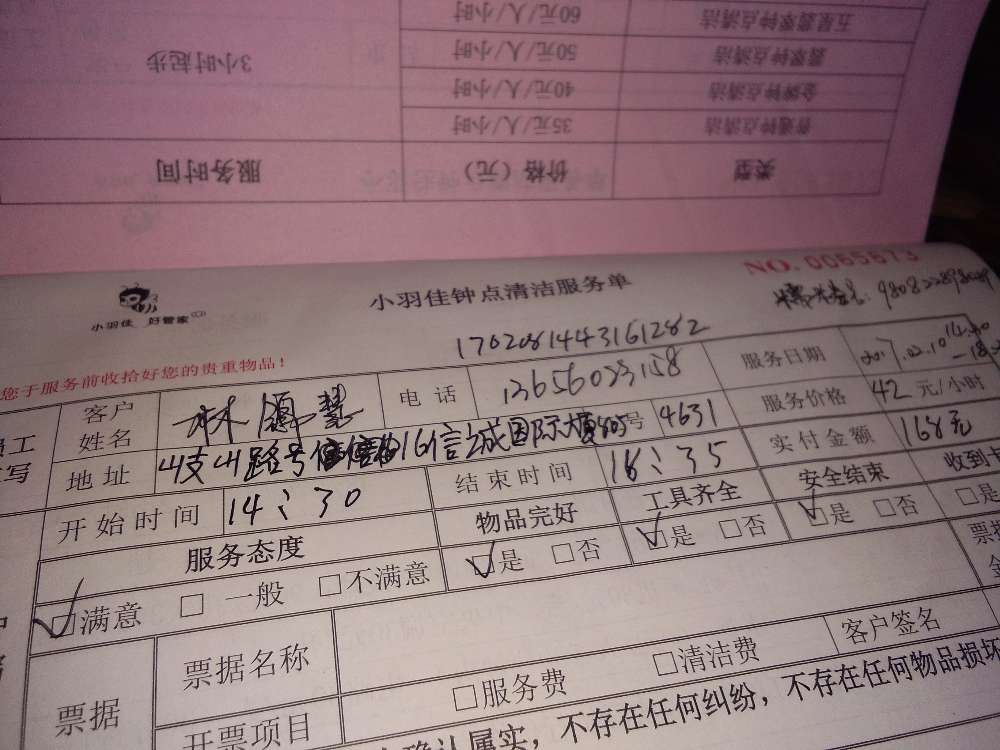 五星翡翠钟点清洁 60元/人/小时
翡翠钟点清洁 50元/人/小时
金牌钟点清洁 40元/人/小时
普通钟点清洁 35元/人/小时
3小时起步
类型 价格（元） 服务时间
NO. 0065673
小羽佳 好管家
小羽佳钟点清洁服务单
1702081443161282
您于服务前收拾好您的贵重物品！
员工
客户
姓名
电话 13656023158
服务日期 2017.02.10 14:30
地址 号 4631
国际大厦
服务价格 42 元/小时
开始时间 14:30
结束时间 18:35
实付金额 168元
服务态度 物品完好 工具齐全 安全结束 收到
满意 一般 不满意 是 否 是 否 是 否 是
票据 票据名称
开票项目 服务费 清洁费 客户签名
确认属实，不存在任何纠纷，不存在任何物品损坏